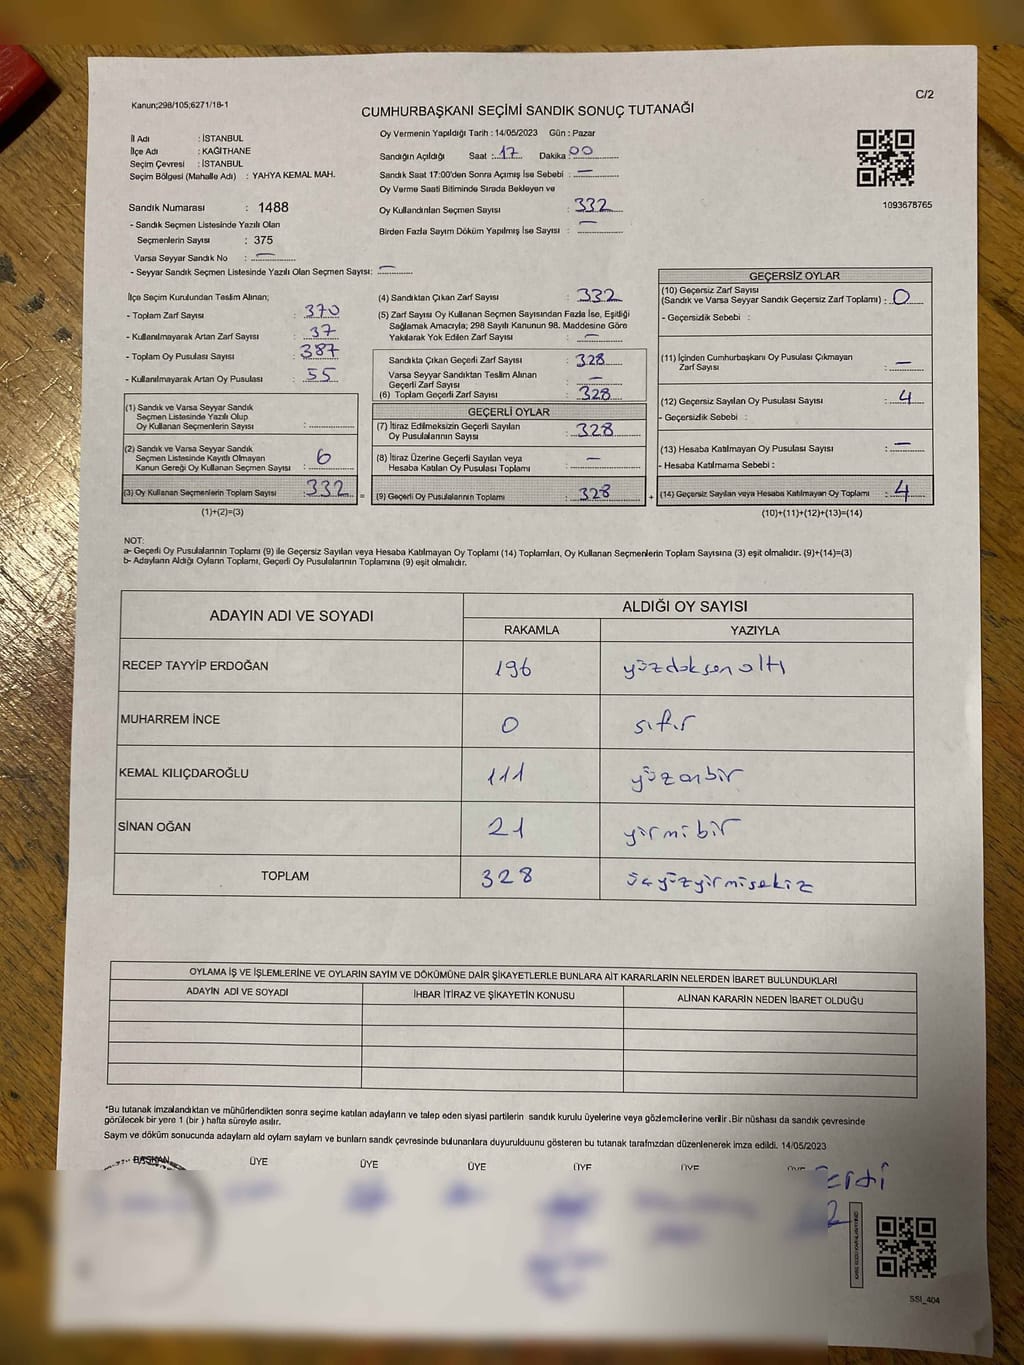 Kanun;298/105;6271/18-1
C/2
CUMHURBAŞKANI SEÇİMİ SANDIK SONUÇ TUTANAĞI
İl Adı : İSTANBUL
İlçe Adı : KAĞITHANE
Seçim Çevresi : İSTANBUL
Seçim Bölgesi (Mahalle Adı) : YAHYA KEMAL MAH.
Oy Vermenin Yapıldığı Tarih : 14/05/2023 Gün : Pazar
Sandığın Açıldığı Saat : 17 Dakika : 00
Sandık Saat 17:00'den Sonra Açımış İse Sebebi : —
Oy Verme Saati Bitiminde Sırada Bekleyen ve
Oy Kullandırılan Seçmen Sayısı : 332
Birden Fazla Sayım Döküm Yapılmış İse Sayısı : —
1093678765
Sandık Numarası : 1488
- Sandık Seçmen Listesinde Yazılı Olan
Seçmenlerin Sayısı : 375
Varsa Seyyar Sandık No : —
- Seyyar Sandık Seçmen Listesinde Yazılı Olan Seçmen Sayısı: —
İlçe Seçim Kurulundan Teslim Alınan;
- Toplam Zarf Sayısı : 370
- Kullanılmayarak Artan Zarf Sayısı : 37
- Toplam Oy Pusulası Sayısı : 387
- Kullanılmayarak Artan Oy Pusulası : 55
(1) Sandık ve Varsa Seyyar Sandık
Seçmen Listesinde Yazılı Olup
Oy Kullanan Seçmenlerin Sayısı :
(2) Sandık ve Varsa Seyyar Sandık
Seçmen Listesinde Kayıtlı Olmayan
Kanun Gereği Oy Kullanan Seçmen Sayısı : 6
(3) Oy Kullanan Seçmenlerin Toplam Sayısı : 332
(1)+(2)=(3)
=
(4) Sandıktan Çıkan Zarf Sayısı : 332
(5) Zarf Sayısı Oy Kullanan Seçmen Sayısından Fazla İse, Eşitliği
Sağlamak Amacıyla; 298 Sayılı Kanunun 98. Maddesine Göre
Yakılarak Yok Edilen Zarf Sayısı : —
Sandıkta Çıkan Geçerli Zarf Sayısı : 328
Varsa Seyyar Sandıktan Teslim Alınan
Geçerli Zarf Sayısı : —
(6) Toplam Geçerli Zarf Sayısı : 328
GEÇERLİ OYLAR
(7) İtiraz Edilmeksizin Geçerli Sayılan
Oy Pusulalarının Sayısı : 328
(8) İtiraz Üzerine Geçerli Sayılan veya
Hesaba Katılan Oy Pusulası Toplamı : —
(9) Geçerli Oy Pusulalarının Toplamı : 328
+
GEÇERSİZ OYLAR
(10) Geçersiz Zarf Sayısı
(Sandık ve Varsa Seyyar Sandık Geçersiz Zarf Toplamı) : 0
- Geçersizlik Sebebi :
(11) İçinden Cumhurbaşkanı Oy Pusulası Çıkmayan
Zarf Sayısı : —
(12) Geçersiz Sayılan Oy Pusulası Sayısı : 4
- Geçersizlik Sebebi :
(13) Hesaba Katılmayan Oy Pusulası Sayısı : —
- Hesaba Katılmama Sebebi :
(14) Geçersiz Sayılan veya Hesaba Katılmayan Oy Toplamı : 4
(10)+(11)+(12)+(13)=(14)
NOT:
a- Geçerli Oy Pusulalarının Toplamı (9) ile Geçersiz Sayılan veya Hesaba Katılmayan Oy Toplamı (14) Toplamları, Oy Kullanan Seçmenlerin Toplam Sayısına (3) eşit olmalıdır. (9)+(14)=(3)
b- Adayların Aldığı Oyların Toplamı, Geçerli Oy Pusulalarının Toplamına (9) eşit olmalıdır.
ADAYIN ADI VE SOYADI
ALDIĞI OY SAYISI
RAKAMLA YAZIYLA
RECEP TAYYİP ERDOĞAN 196 yüzdoksanaltı
MUHARREM İNCE 0 sıfır
KEMAL KILIÇDAROĞLU 111 yüzonbir
SİNAN OĞAN 21 yirmibir
TOPLAM 328 üçyüzyirmisekiz
OYLAMA İŞ VE İŞLEMLERİNE VE OYLARIN SAYIM VE DÖKÜMÜNE DAİR ŞİKAYETLERLE BUNLARA AİT KARARLARIN NELERDEN İBARET BULUNDUKLARI
ADAYIN ADI VE SOYADI İHBAR İTİRAZ VE ŞİKAYETİN KONUSU ALINAN KARARIN NEDEN İBARET OLDUĞU
*Bu tutanak imzalandıktan ve mühürlendikten sonra seçime katılan adayların ve talep eden siyasi partilerin sandık kurulu üyelerine veya gözlemcilerine verilir .Bir nüshası da sandık çevresinde
görülecek bir yere 1 (bir ) hafta süreyle asılır.
Sayım ve döküm sonucunda adayların ald oyların sayları ve bunların sandk çevresinde bulunanlara duyurulduunu gösteren bu tutanak tarafmzdan düzenlenerek imza edildi. 14/05/2023
BAŞKAN ÜYE ÜYE ÜYE ÜYE ÜYE ÜYE
SSI_404